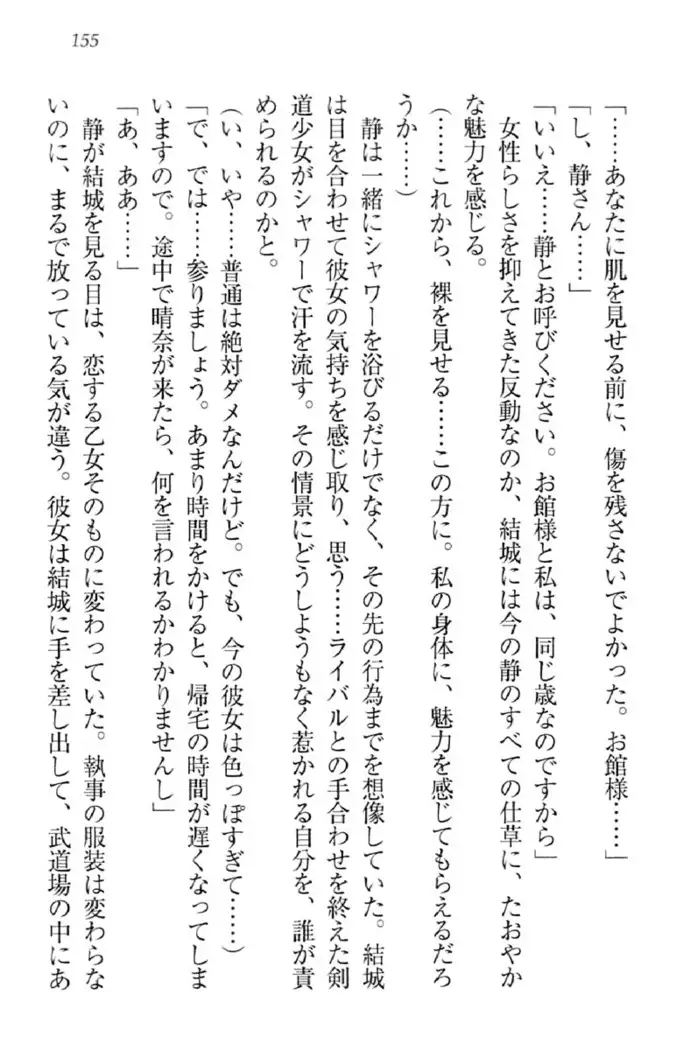 155
「……あなたに肌を見せる前に、傷を残さないでよかった。お館様……」
「し、静さん……」
「いいえ……静とお呼びください。お館様と私は、同じ歳なのですから」
女性らしさを抑えてきた反動なのか、結城には今の静のすべての仕草に、たおやか
な魅力を感じる。
(……これから、裸を見せる……この方に。私の身体に、魅力を感じてもらえるだろ
うか……)
静は一緒にシャワーを浴びるだけでなく、その先の行為までを想像していた。結城
は目を合わせて彼女の気持ちを感じ取り、思う……ライバルとの手合わせを終えた剣
道少女がシャワーで汗を流す。その情景にどうしようもなく惹かれる自分を、誰が責
められるのかと。
(い、いや……普通は絶対ダメなんだけど。でも、今の彼女は色っぽすぎて……)
「で、では……参りましょう。あまり時間をかけると、帰宅の時間が遅くなってしま
いますので。途中で晴奈が来たら、何を言われるかわかりませんし」
「あ、ああ……」
静が結城を見る目は、恋する乙女そのものに変わっていた。執事の服装は変わらな
いのに、まるで放っている気が違う。彼女は結城に手を差し出して、武道場の中にあ